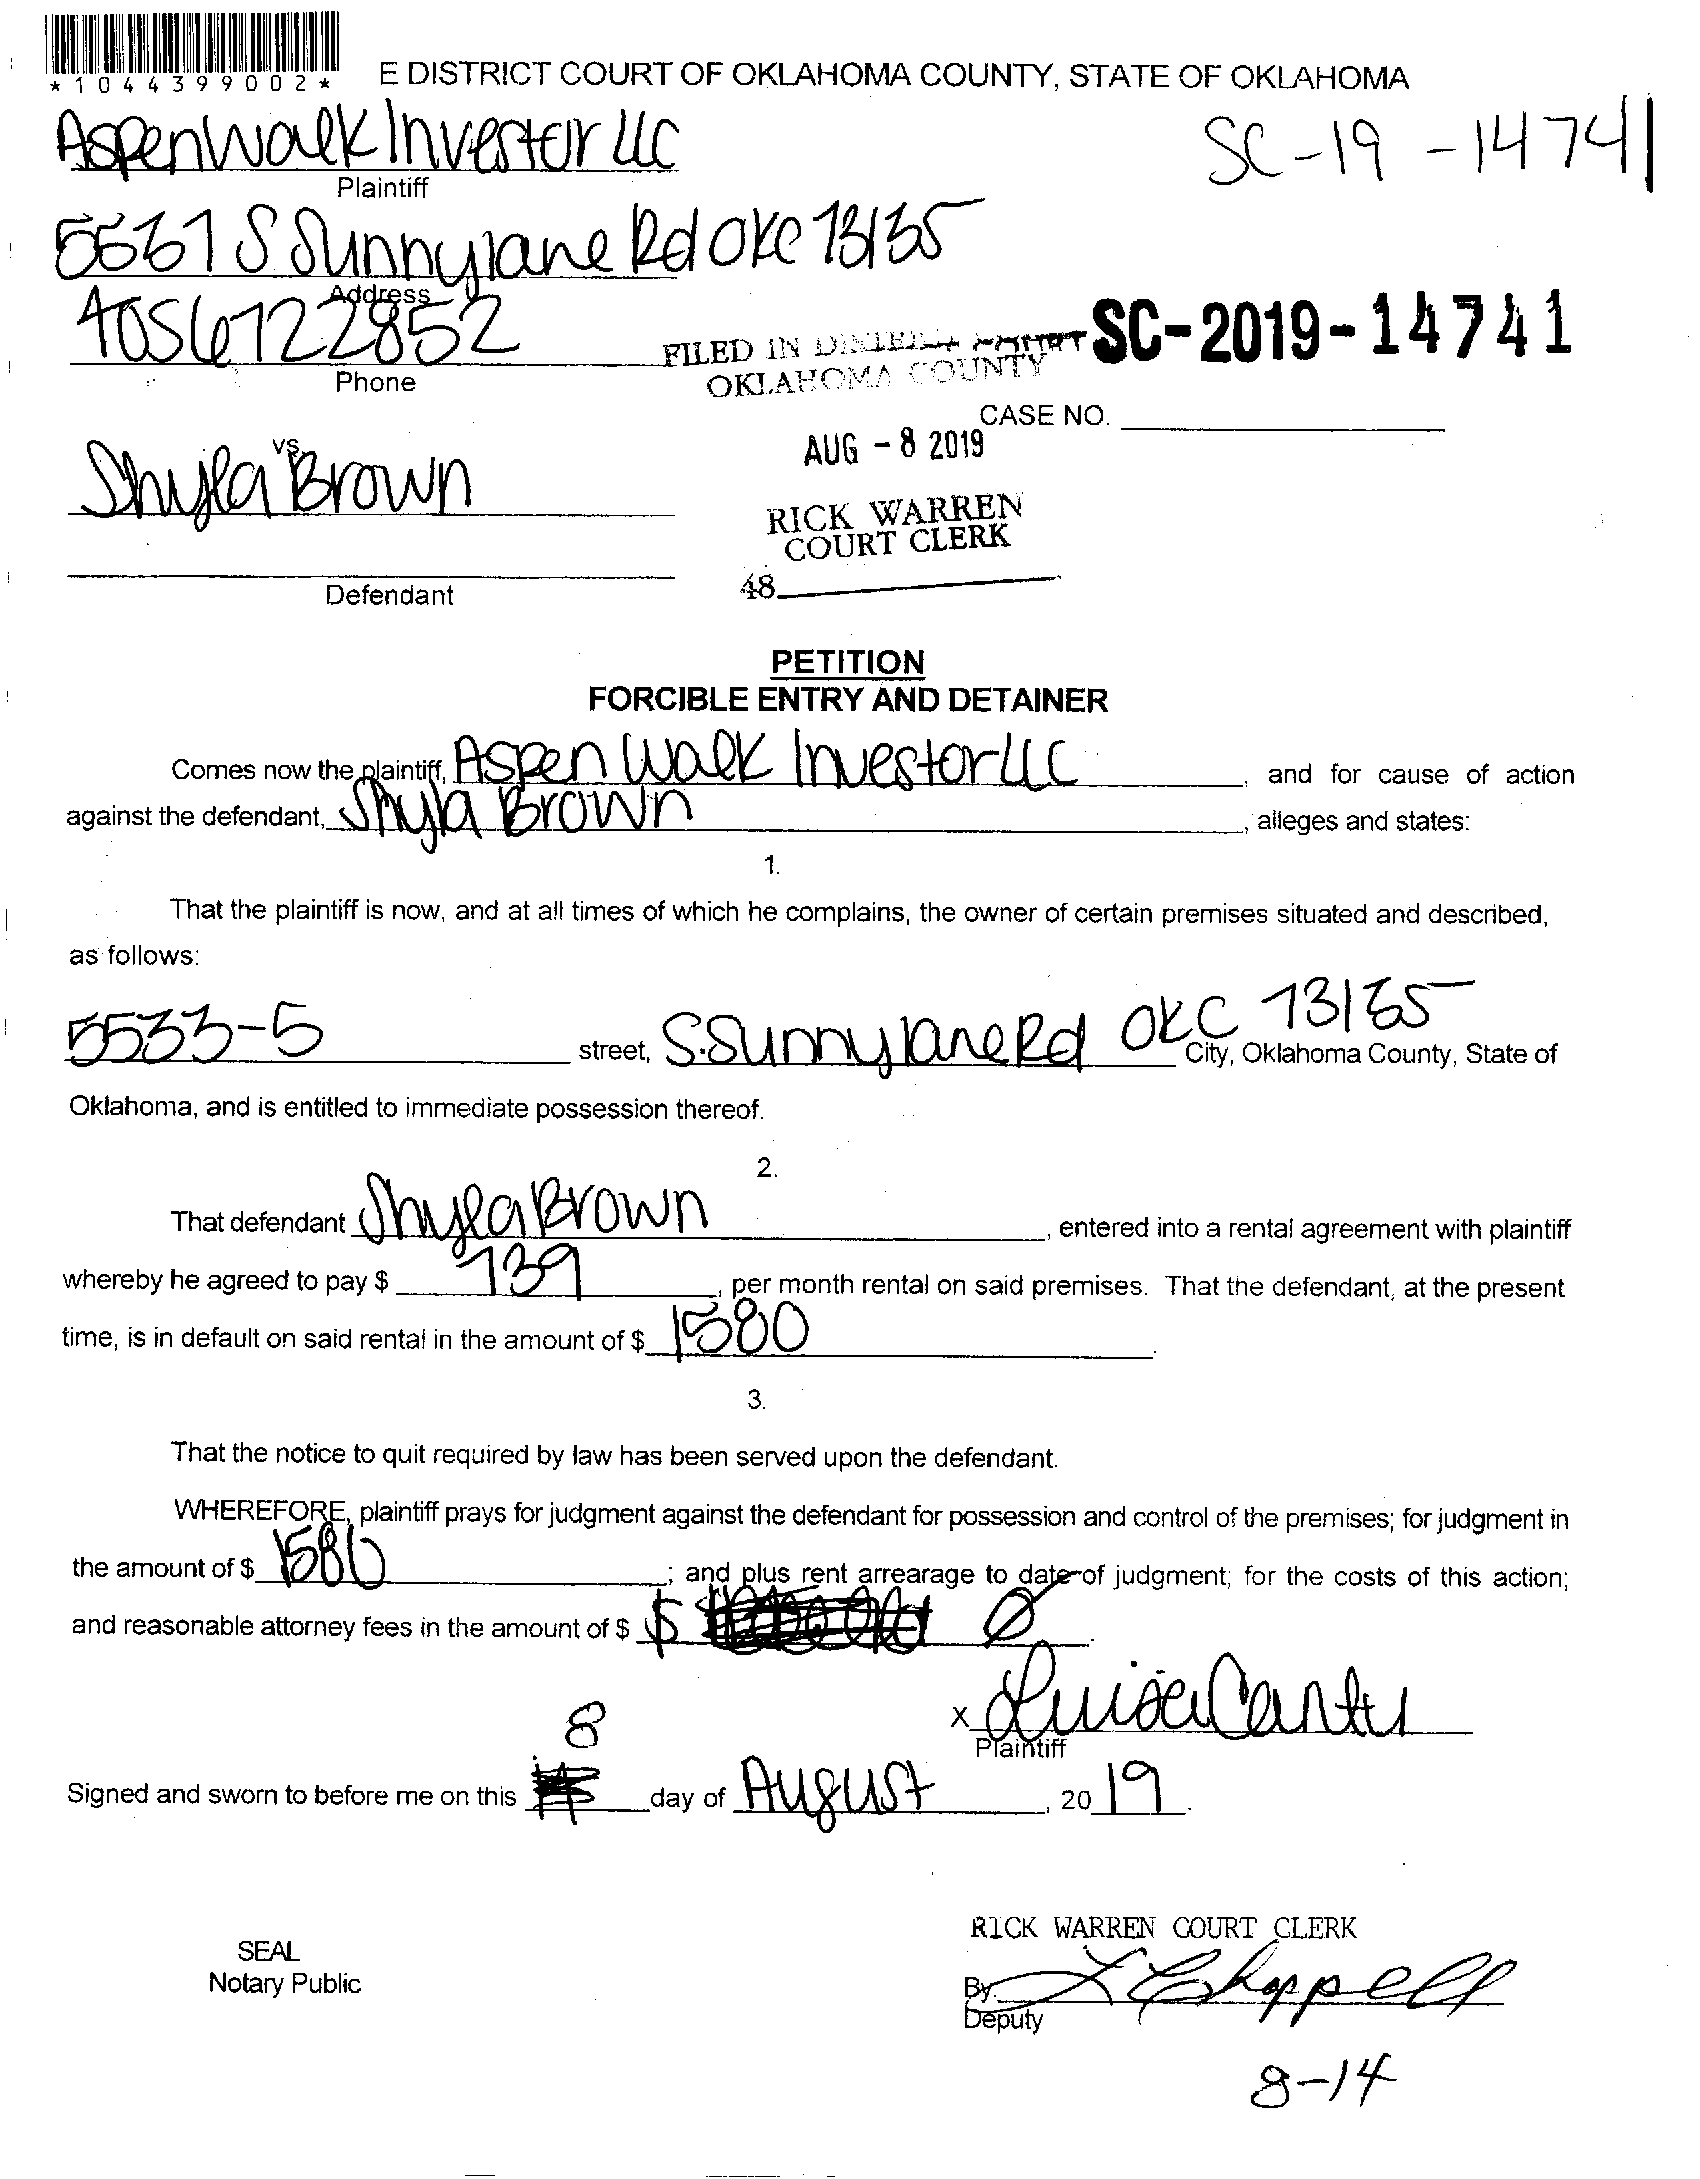 *1044399002*
E DISTRICT COURT OF OKLAHOMA COUNTY, STATE OF OKLAHOMA
Aspen Walk Investor LLC
SC-19-14741
Plaintiff
S Sunnylane Rd OKC 73135
Address
4056722852
SC-2019-14741
FILED IN DISTRICT COURT
OKLAHOMA COUNTY
Phone
CASE NO.
AUG - 8 2019
vs.
Shyla Brown
RICK WARREN
COURT CLERK
48
Defendant
PETITION
FORCIBLE ENTRY AND DETAINER
Comes now the plaintiff, Aspen Walk Investor LLC, and for cause of action
against the defendant, Shyla Brown, alleges and states:
1.
That the plaintiff is now, and at all times of which he complains, the owner of certain premises situated and described,
as follows:
5533-5 street, S. Sunnylane Rd OKC 73135 City, Oklahoma County, State of
Oklahoma, and is entitled to immediate possession thereof.
2.
That defendant Shyla Brown, entered into a rental agreement with plaintiff
whereby he agreed to pay $ 739, per month rental on said premises. That the defendant, at the present
time, is in default on said rental in the amount of $ 1580.
3.
That the notice to quit required by law has been served upon the defendant.
WHEREFORE, plaintiff prays for judgment against the defendant for possession and control of the premises; for judgment in
the amount of $ 1580; and plus rent arrearage to date of judgment; for the costs of this action;
and reasonable attorney fees in the amount of $ $ Ø.
x Luisa Cantu
Plaintiff
8
Signed and sworn to before me on this day of August, 2019.
RICK WARREN COURT CLERK
SEAL
Notary Public
By: L Chappell
Deputy
8-14